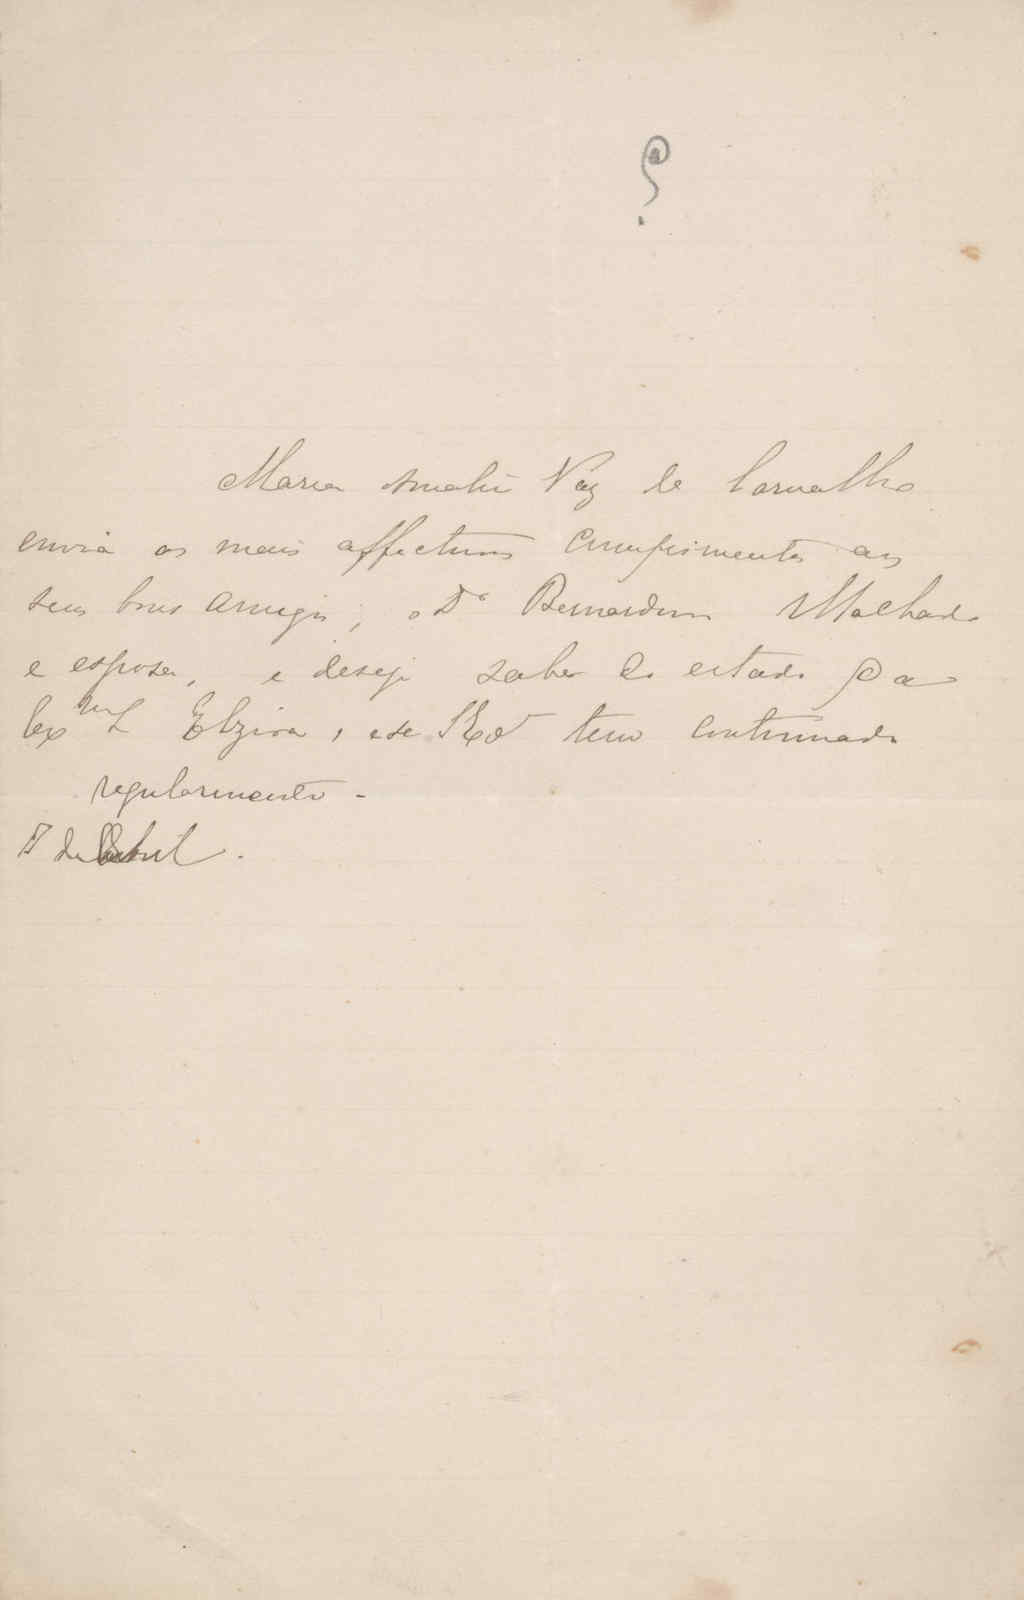 ?
Maria Amalia Vaz de Carvalho
envia os mais affectuosos cumprimentos aos
seus bons amigos, o Dr Bernardino Machado
e esposa, e deseja saber do estado da
Exma Elzira, e se tem continuado
regularmente -
de Abril.